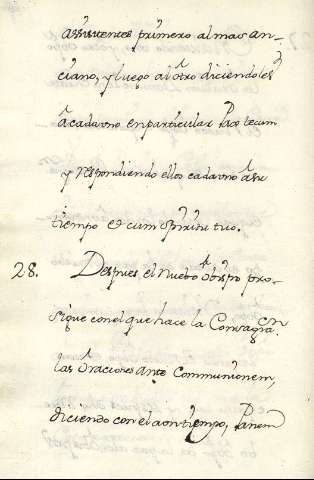 assistentes primero al mas an-
ciano, y luego al otro diciendoles
a cada uno en particular Pax tecum
y respondiendo ellos cada uno a su
tiempo et cum spiritu tuo.
28. Despues el nuebo obispo pro-
sigue con el que hace la Consagraon
las oraciones ante communionem,
diciendo con el a un tiempo, Panem